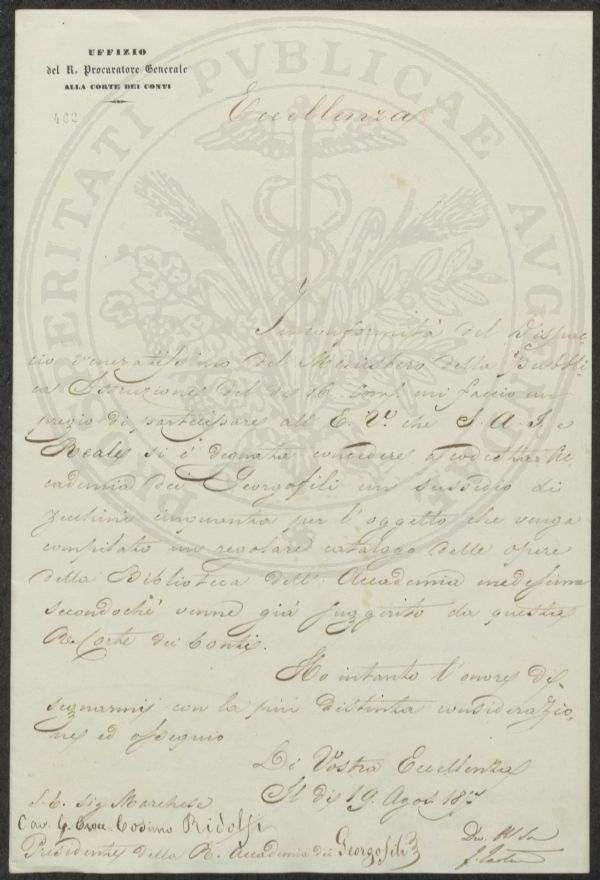 UFFIZIO
del R. Procuratore Generale
ALLA CORTE DEI CONTI
462
Eccellenza
PROSPERITATI PVBLICAE AVGENDAE
In conformità del Dispac
cio veneratissimo del Ministero della Pubbli
ca Istruzione del dì 16. mi faccio un
pregio di partecipare all' E. V. che S. A. I. e
Reale si è degnata concedere a codesta Ac
cademia dei Georgofili un sussidio di
Zecchini cinquanta per l'oggetto che venga
compilato un regolare catalogo delle opere
della Biblioteca dell' Accademia medesima
secondochè venne già suggerito da questa
R. Corte dei Conti.
Ho intanto l'onore di
segnarmi con la più distinta considerazio
ne ed ossequio
Di Vostra Eccellenza
Il dì 19. Agos.
S. E. Sig. Marchese
Cav. G. Croce Cosimo Ridolfi
Presidente della R. Accademia dei Georgofili